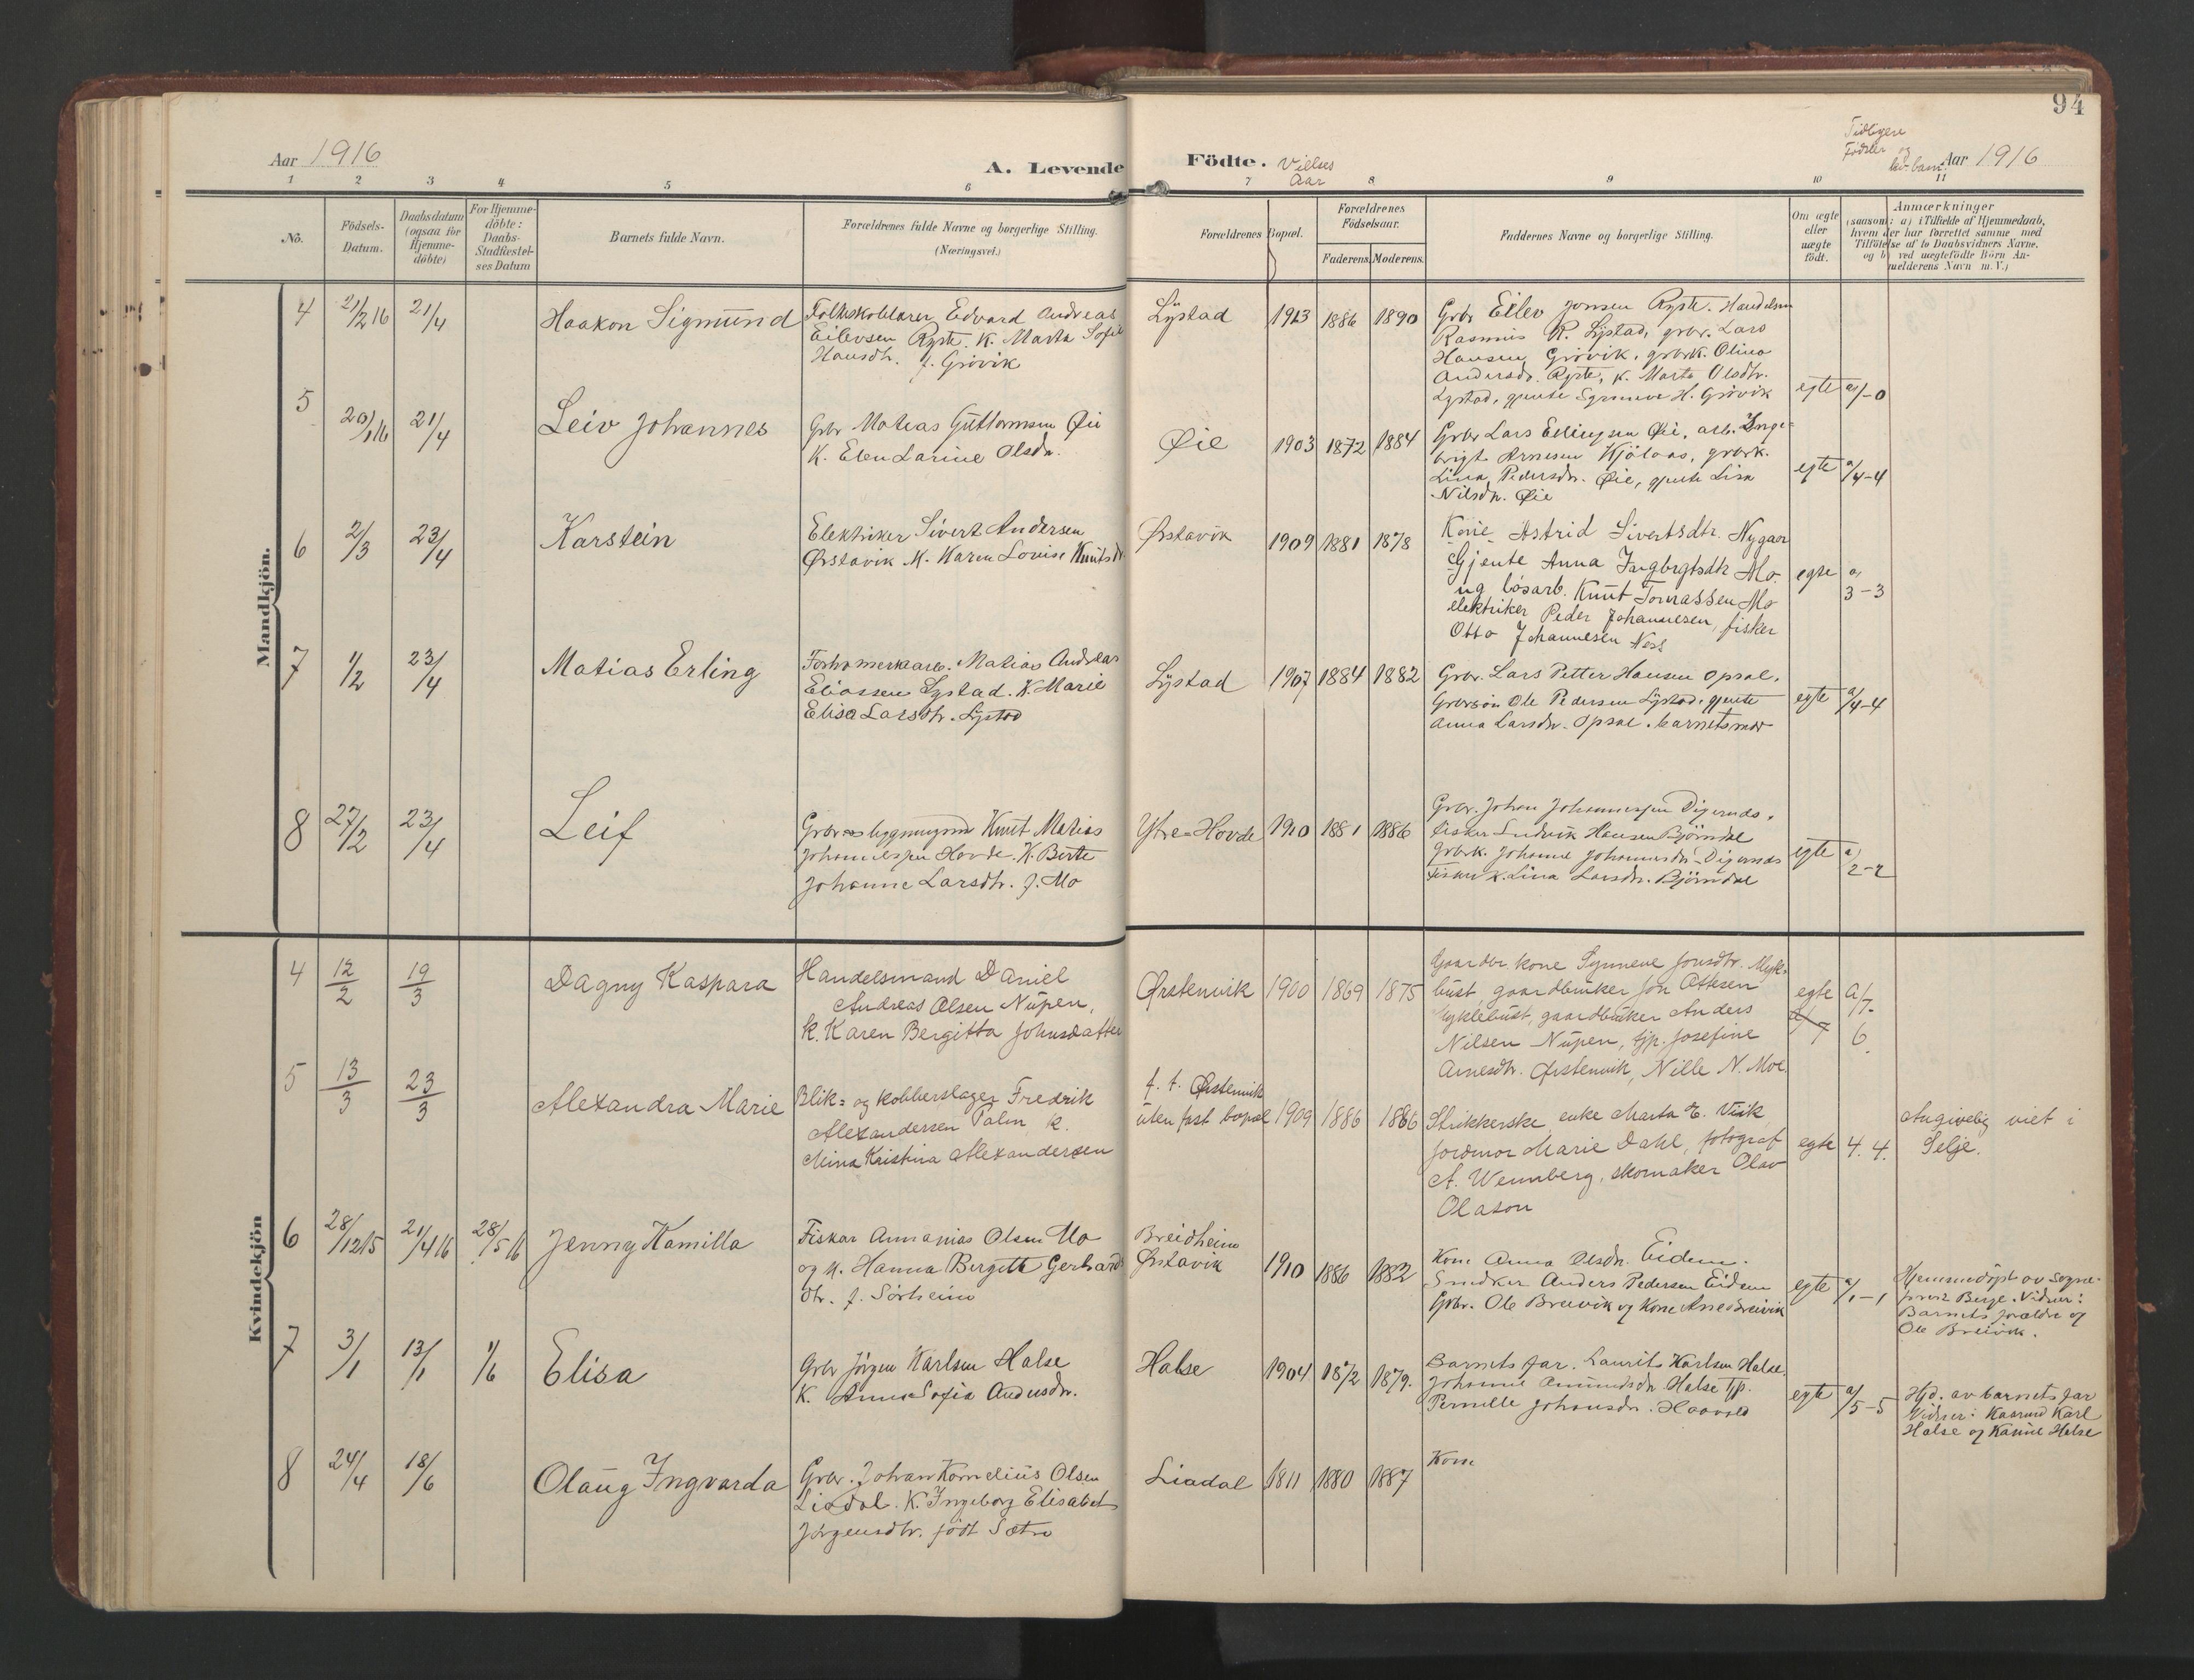 94
Aar 1916
A. Levende
Födte.
Vielses
Aar
Tidligere
Födsler og
lev. barn.
Aar 1916
1 2 3 4 5 6 7 8 9 10 11
No.
Födsels-
Datum.
Daabsdatum
(ogsaa for
Hjemme-
döbte)
For Hjemme-
döbte:
Daabs-
Stadfæstel-
ses Datum
Barnets fulde Navn.
Forældrenes fulde Navne og borgerlige Stilling.
(Næringsvei.)
Forældrenes Bopæl.
Forældrenes
Födselsaar.
Faderens. Moderens.
Faddernes Navne og borgerlige Stilling.
Om ægte
eller
uægte
födt.
Anmærkninger
(saasom: a) i Tilfælde af Hjemmedaab,
hvem der har forrettet samme med
Tilföielse af to Daabsvidners Navne,
og b) ved uægtefödte Börn An-
melderens Navn m. V.)
Mandkjön.
4 21/2 16 21/4
Haakon Sigmund
Folkskolelærer Edvard Andreas
Eilevsen Ryste. K. Marta Sofie
Hansdtr. f. Grövik
Lystad 1913 1886 1890
Grbr Eilev Jonsen Ryste. Handelsm
Rasmus R. Lystad, grbr. Lars
Hansen Grövik, grbrk. Olina
Andersdr. Ryste, K. Marta Olsdtr.
Lystad, gjente Synneve H. Grövik
egte a/1-0
5 20/1 16 21/4
Leiv Johannes
Grbr Matias Guttormsen Øie
K. Elen Larine Olsdr.
Øie 1903 1872 1884
Grbr Lars Ellingsen Øie, arb. Inge-
brigt Arnesen Kjölaas, grbrk.
Lina Pedersdr. Øie, gjente Lisa
Nilsdr. Øie
egte a/4-4
6 2/3 23/4
Karstein
Elektriker Sivert Andersen
Ørstavik K. Karen Lovise Knutsdr
Ørstavik 1909 1881 1878
Kone Astrid Sivertsdtr. Nygaar
Gjente Anna Ingbrgtsdtr Mo.
ug lösarb. Knut Tomassen Mo
elektriker Peder Johannesen, fisker
Otto Johannesen Ness
egte a/ 3-3
7 1/2 23/4
Matias Erling
Matias Andreas
Eliassen Lystad. K. Marie
Elisa Larsdtr. Lystad
Lystad 1907 1884 1882
Grbr. Lars Petter Hansen Opsal.
Grbrsön Ole Pedersen Lystad, gjente
Anna Larsdr. Opsal. barnets mor
egte a/4-4
8 27/2 23/4
Leif
Grbr og bygmester Knut Matias
Johannessen Hovde. K. Berte
Johanne Larsdtr. f. Mo
Ytre-Hovde 1910 1881 1886
Grbr. Johan Johannessen Digernes,
fisker Ludvik Hansen Björndal
Grbrk. Johanne Johannesdr. Digernes
Fisker K. Lina Larsdr. Björndal
egte a/ 2-2
Kvindekjön
4 12/2 19/3
Dagny Kaspara
Handelsmand Daniel
Andreas Olsen Nupen,
k. Karen Bergitta Johnsdatter
Ørstenvik 1900 1869 1875
Gaardbr. kone Synneve Jonsdtr. Mykle-
bust, gaardbruker Jon Ottesen
Myklebust, gaardbruker Anders
Nilsen Nupen, tjp. Josefine
Arnesdtr. Ørstenvik, Nille N. Moe.
egte a/7-
6.
5 13/3 23/3
Alexandra Marie
Blik- og kobberslager Fredrik
Alexandersen Palm k.
Mina Kristina Alexandersen
f. t. Ørstenvik
uten fast bopæl 1909 1886 1886
Strikkerske enke Marta E. Viik,
jordmor Marie Dahl, fotograf
A. Wennberg, skomaker Olav
Olason
egte 4. 4.
Angivelig viet i
Selje.
6 28/12 15 21/4 16 28/5 16
Jenny Kamilla
Fisker Annanias Olsen Mo
og K. Hanna Bergitte Gerhards
dtr. f. Sörheim
Breidheim
Ørstavik 1910 1886 1882
Kone Anna Olsdr. Eidem.
Snedker Anders Pedersen Eidem
Grbr. Ole Breivik og Kone Ane Breivik
egte a/1-1
Hjemmedöpt av sogne-
prest Berge. Vidner:
Barnets forældre og
Ole Breivik.
7 3/1 13/1 1/6
Elisa
Grbr Jörgen Karlsen Halse
K. Anna Sofia Andersdr.
Halse 1904 1872 1879.
Barnets far. Laurits Karlsen Halse,
Johanne Amundsdr. Halse tjp.
Pernille Johansdr. Haavold
egte a/5-5
Hjd. av barnets far
Vidner: Karl
Halse og Kamie Halse
8 24/4 18/6
Olaug Ingvarda
Grbr. Johan Kornelius Olsen
Liadal. K. Ingeborg Elisabet
Jörgensdtr. född Sætre
Liadal 1811 1880 1887
Kone